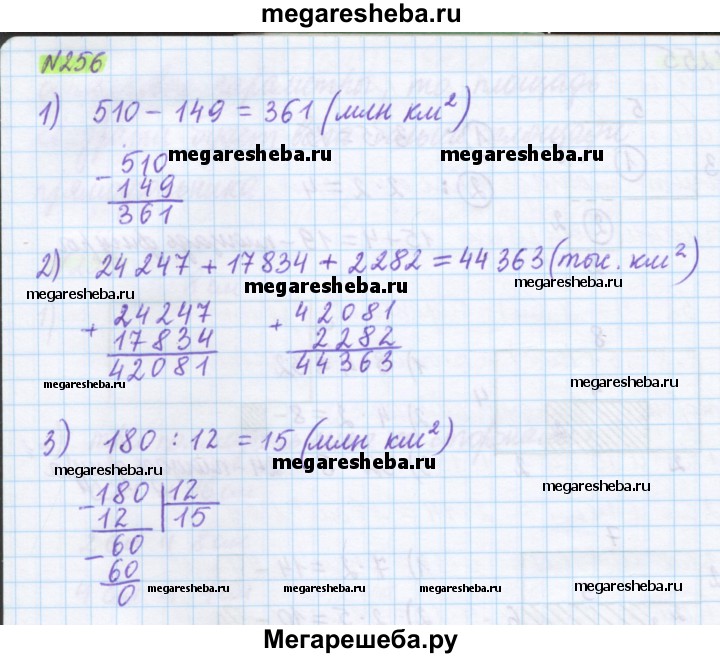 megaresheba.ru
N256
1) 510 - 149 = 361 (млн км²)
megaresheba.ru megaresheba.ru
- 510
149
361
2) 24 247 + 17 834 + 2 282 = 44 363 (тыс. км²)
megaresheba.ru megaresheba.ru megaresheba.ru
+ 24247 + 42081
17834 2282
42081 44363
megaresheba.ru megaresheba.ru
3) 180 : 12 = 15 (млн км²)
megaresheba.ru megaresheba.ru
- 180 12
12 15
megaresheba.ru
- 60
60
0
megaresheba.ru megaresheba.ru megaresheba.ru
Мегарешеба.ру